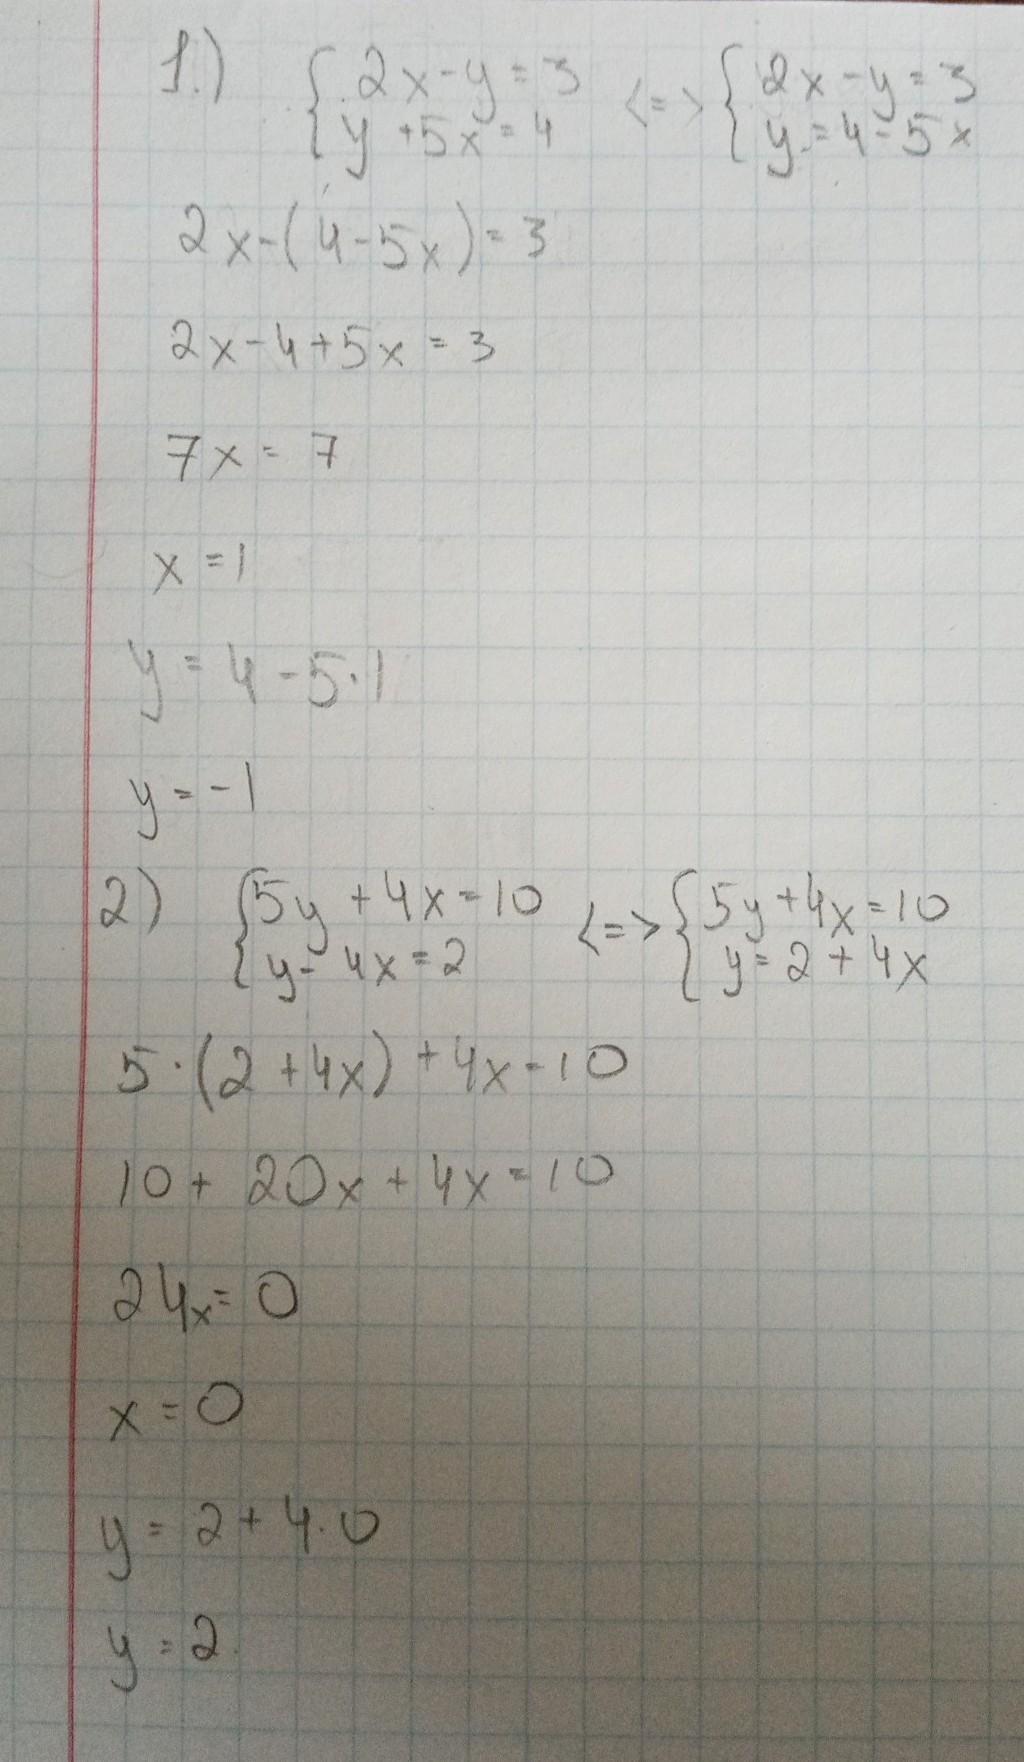 1.) { 2x - y = 3 <=> { 2x - y = 3
y + 5x = 4 y = 4 - 5x
2x - (4 - 5x) = 3
2x - 4 + 5x = 3
7x = 7
x = 1
y = 4 - 5·1
y = -1
2) { 5y + 4x = 10 <=> { 5y + 4x = 10
y - 4x = 2 y = 2 + 4x
5·(2 + 4x) + 4x = 10
10 + 20x + 4x = 10
24x = 0
x = 0
y = 2 + 4·0
y = 2